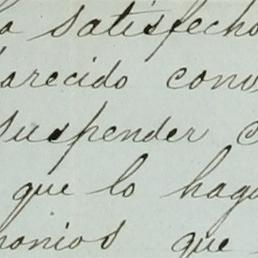 satisfecho
parecido conv
suspender c
que lo haga
monios que